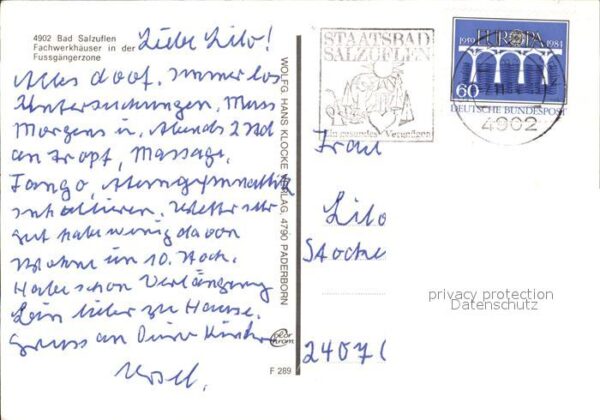 4902 Bad Salzuflen
Fachwerkhäuser in der
Fussgängerzone
Liebe Lilo!
Alles doof. Immer los
Untersuchungen. Muss
Morgens u. Abends 2 Std
an Tropf, Massage,
Fango, Atemgymnastik
inhallieren. Wetter sehr
gut habe wenig davon
Wohne im 10. Stock.
Habe schon Verlängerung
Bin lieber zu Hause.
Gruss an Deine Kinder
WOLFG. HANS KLOCKE VERLAG, 4790 PADERBORN
Color
chrom
F 289
STAATSBAD
SALZUFLEN
Ein gesundes Vergnügen
1959 EUROPA 1984
60
DEUTSCHE BUNDESPOST
4902
Frau
Lilo
privacy protection
Datenschutz